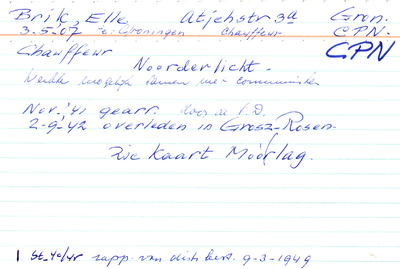 Brik, Elle Atjehstr 3a Gron.
3.5.07 te Groningen Chauffeur C.P.N.
Chauffeur CPN
Noorderlicht.
Werkte mogelijk samen met communisten
Nov. '41 gearr. door de S.D.
2-9-'42 overleden in Grosz-Rosen.
Zie kaart Moorlag.
rapp. van distr. 9-3-1949